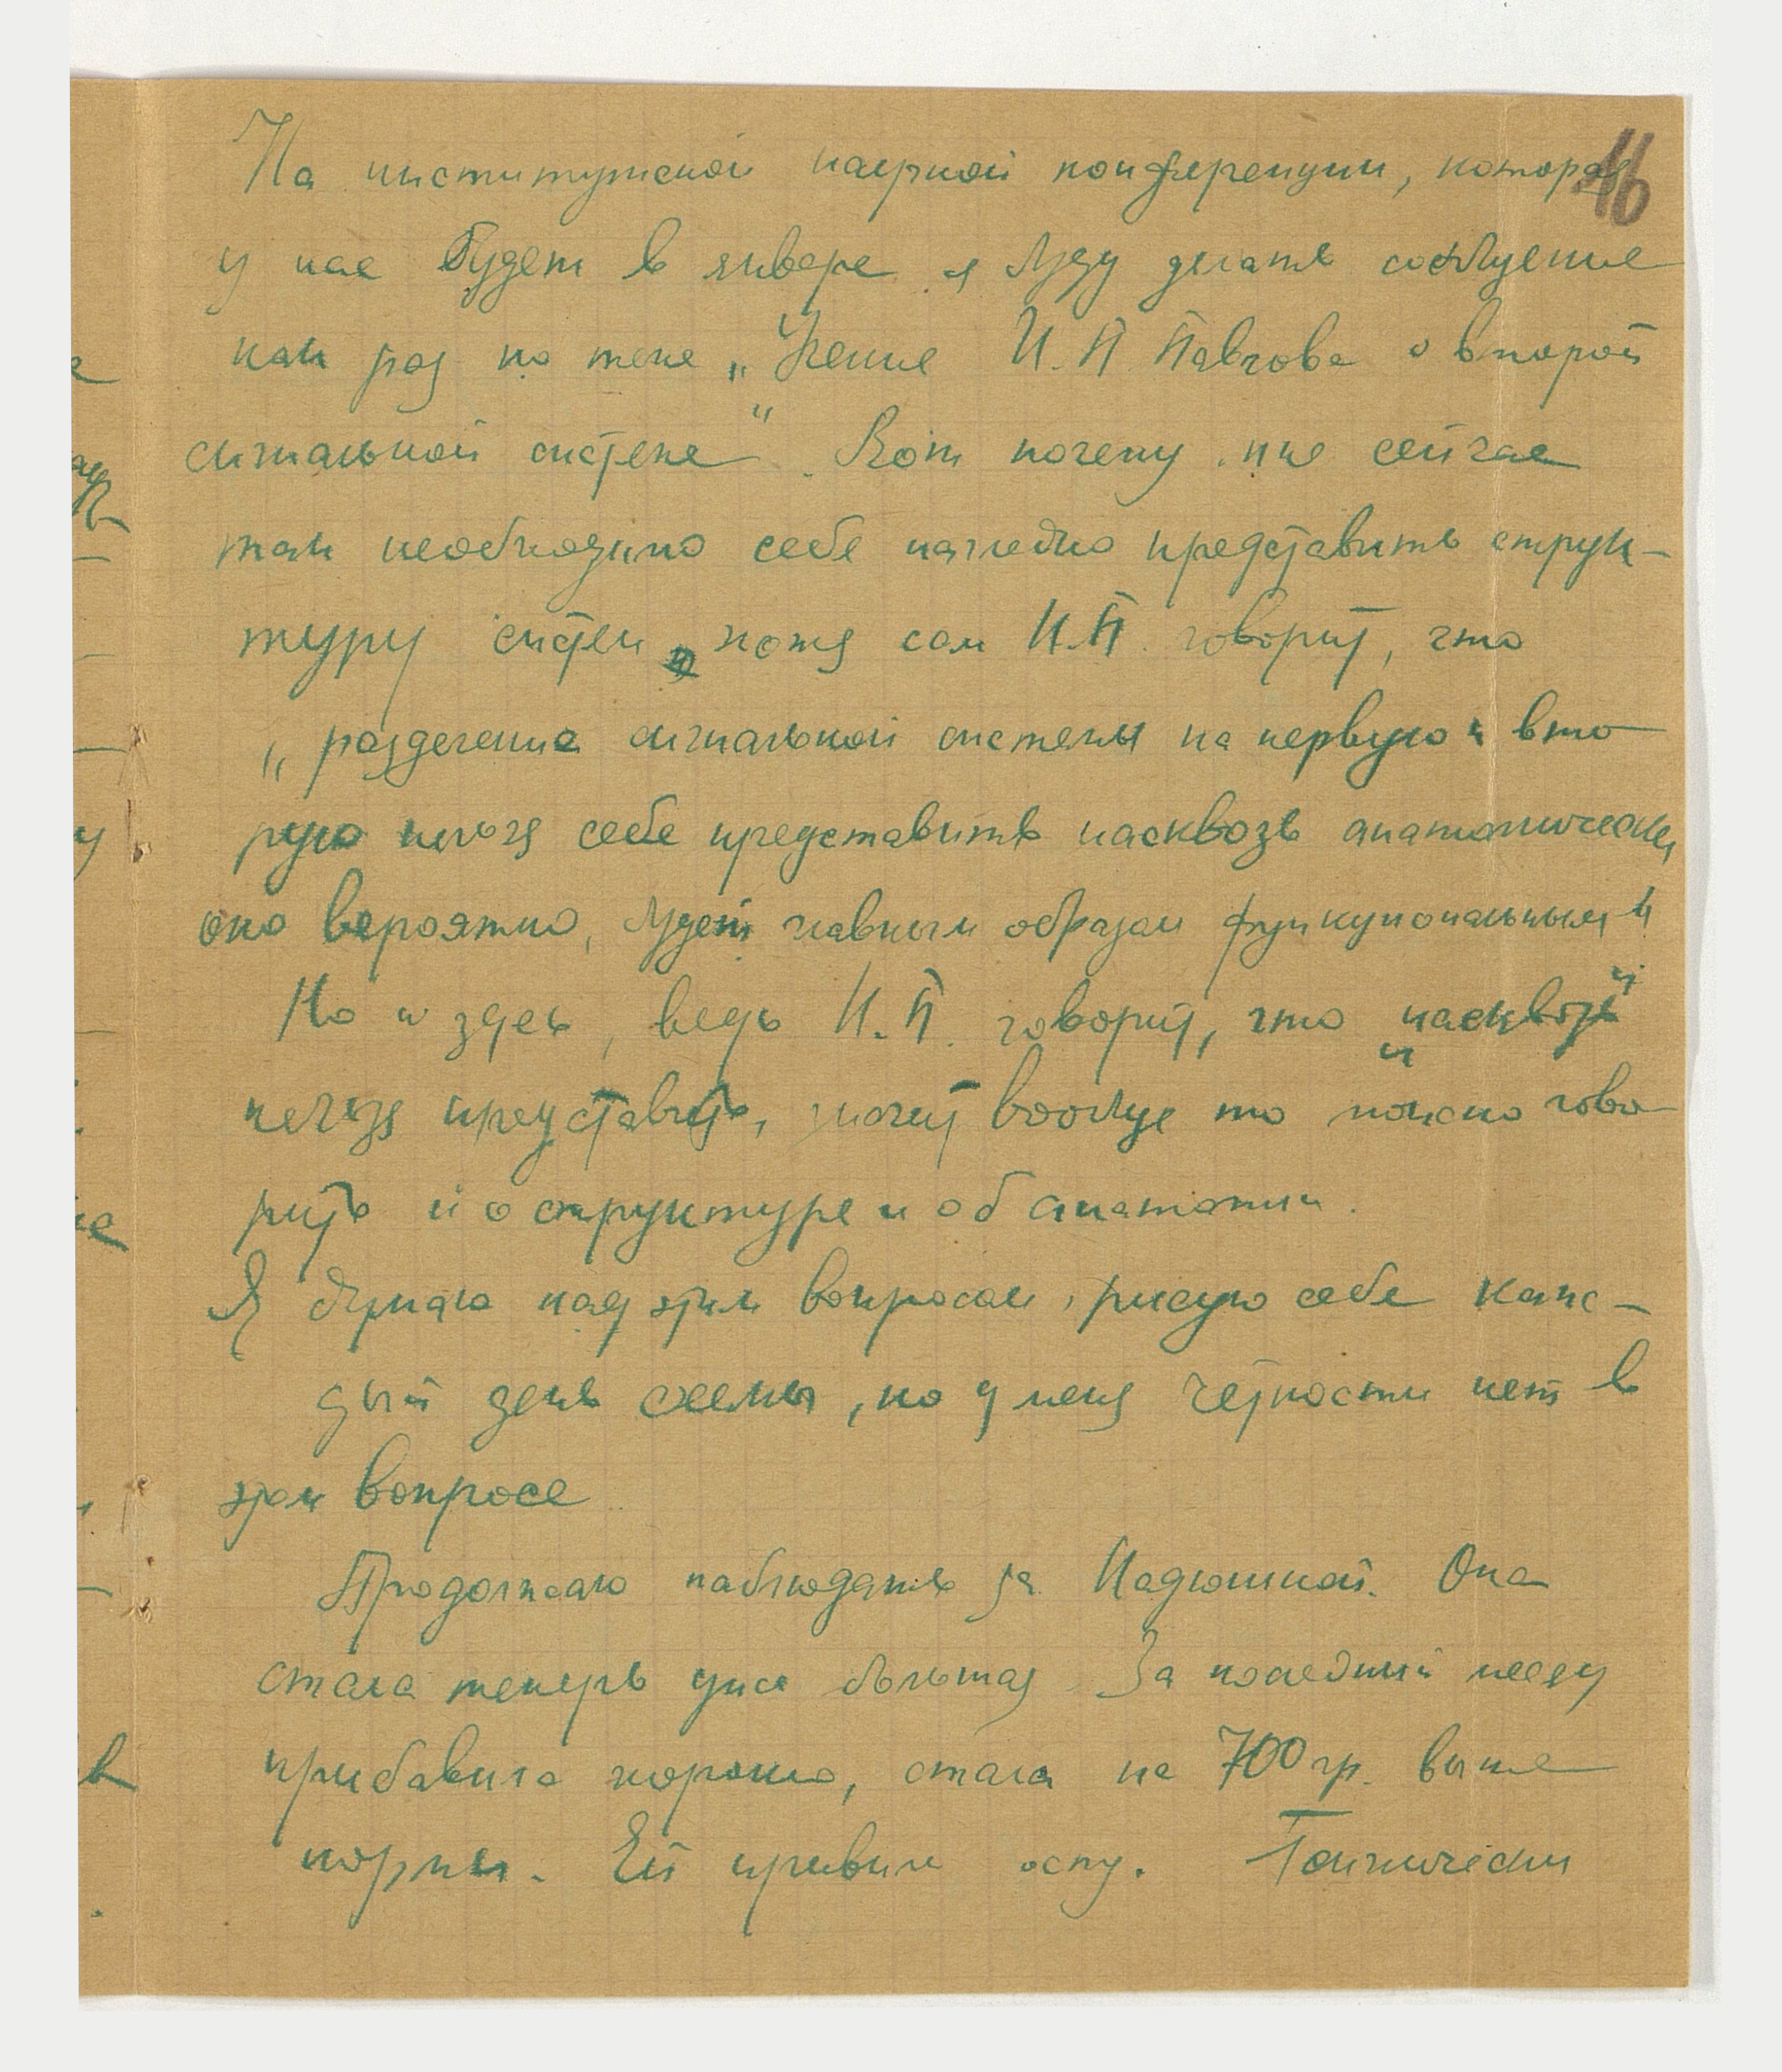 16
На институтской научной конференции, которая
у нас будет в январе я буду делать сообщение
как раз на тему „Учение И. П. Павлова о второй
сигнальной системе". Вот почему мне сейчас
так необходимо себе наглядно представить струк-
туру систем, хотя сам И.П. говорит, что
„разделение сигнальной системы на первую и вто-
рую нельзя себе представить насквозь анатомически,
оно вероятно, будет главным образом функциональным"
Но и здесь, ведь И.П. говорит, что „насквозь"
нельзя представить, значит вообще то можно гово-
рить и о структуре и об анатомии.
Я думаю над этим вопросом, рисую себе каж-
дый день схемы, но у меня чёткости нет в
этом вопросе
Продолжаю наблюдать за Надюшкой. Она
стала теперь уже большая. За последний месяц
прибавила хорошо, стала на 700 гр. выше
нормы. Ей привили оспу.